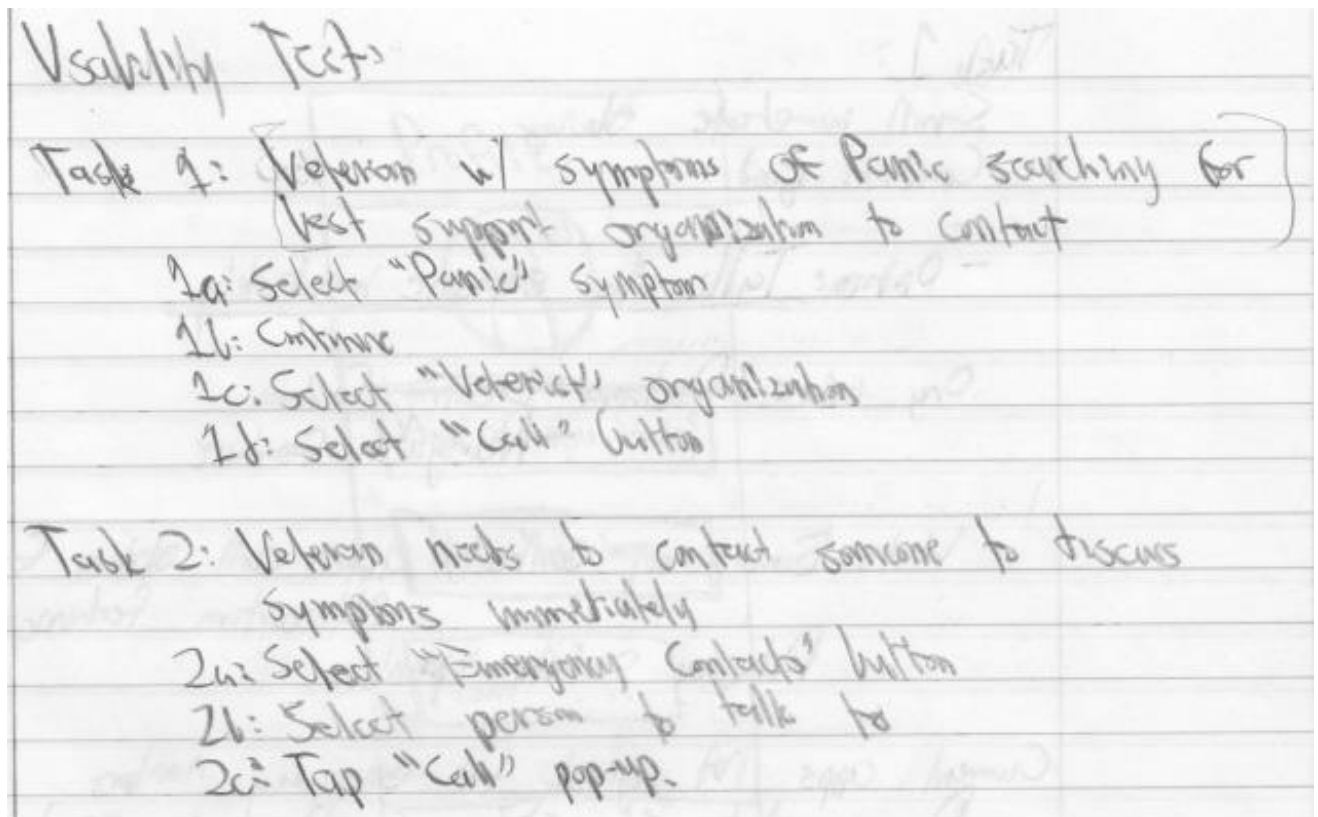 Usability Tests
Task 1: Veteran w/ symptoms of Panic searching for
best support organization to contact
1a: Select "Panic" symptom
1b: Continue
1c: Select organization
1d: Select "Call" button
Task 2: Veteran needs to contact someone to discuss
symptoms immediately
2a: Select "Emergency Contacts" button
2b: Select person to talk to
2c: Tap "Call" pop-up.